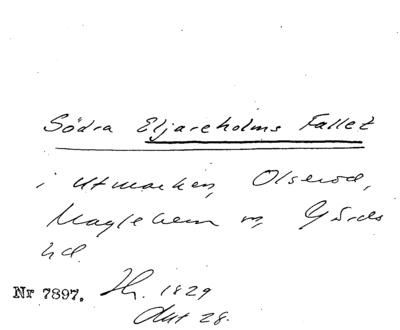 Södra Eljareholms Fallet
i Utmarken, Olseröd,
Maglehem s, Gärds
hd.
Nr 7897. Hr. 1829
Akt 28.